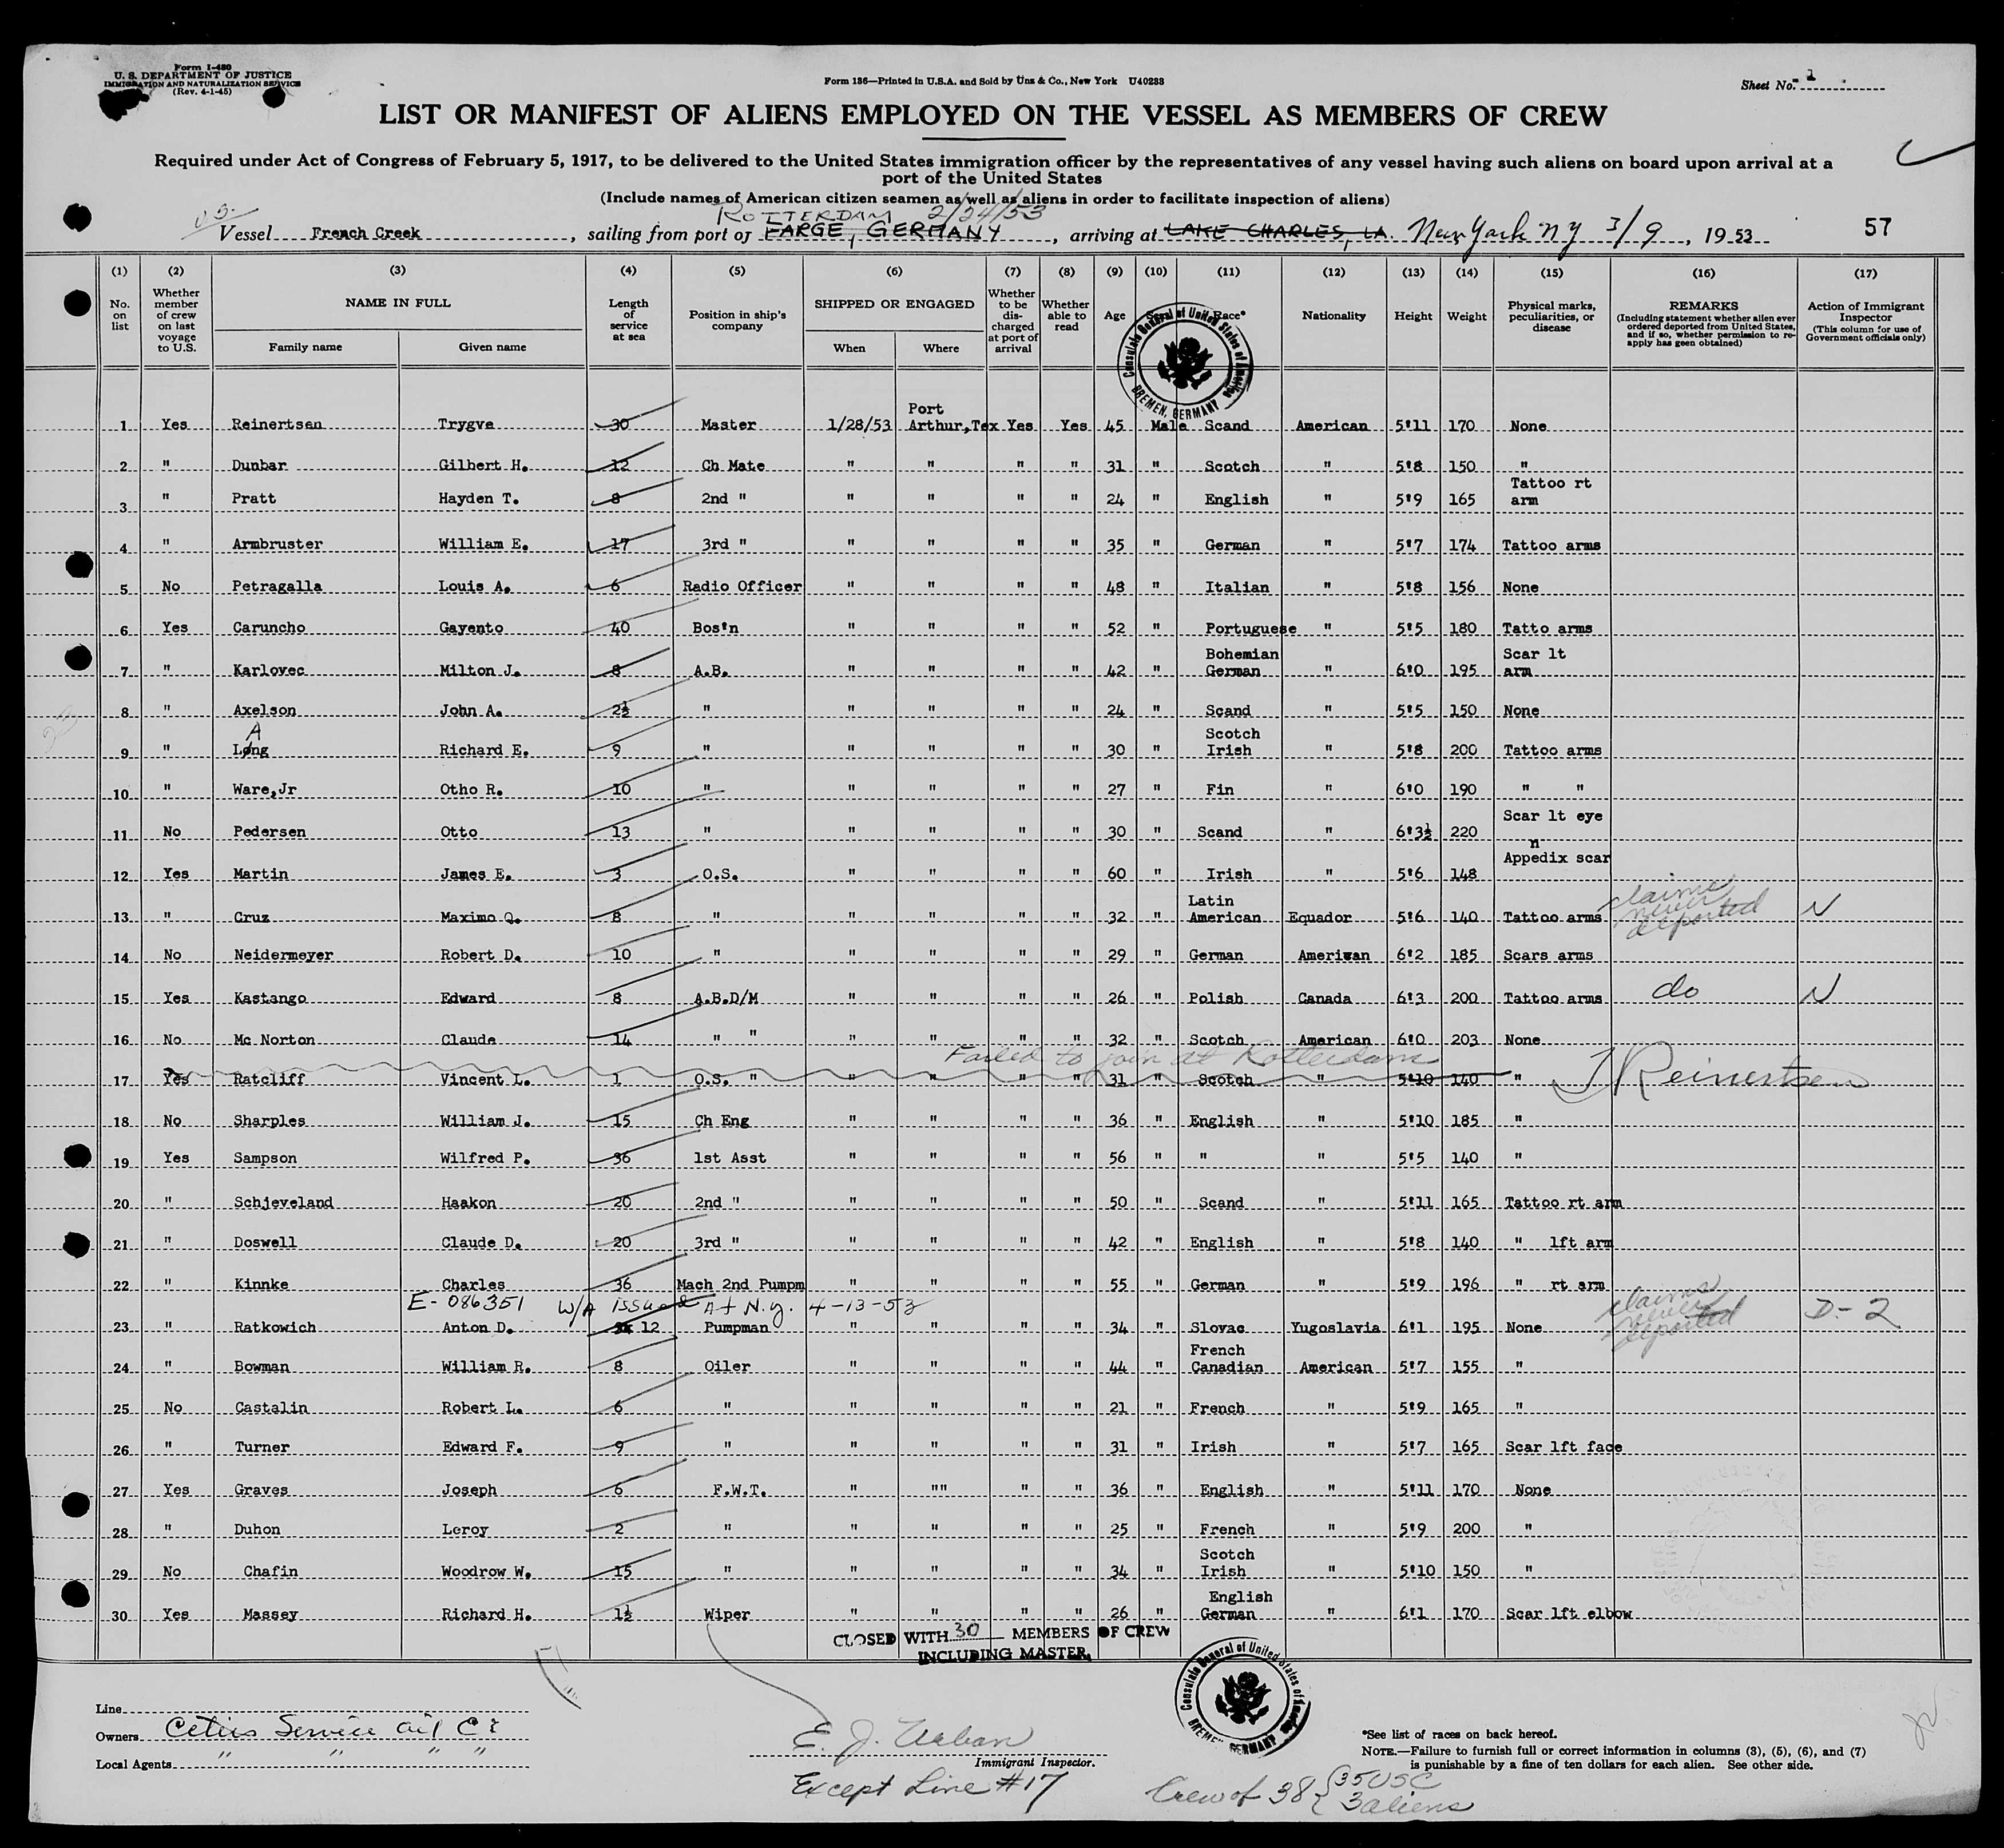 Form I-480
U. S. DEPARTMENT OF JUSTICE
IMMIGRATION AND NATURALIZATION SERVICE
(Rev. 4-1-45)
Form 136—Printed in U.S.A. and Sold by Unz & Co., New York U40233
Sheet No. 1
LIST OR MANIFEST OF ALIENS EMPLOYED ON THE VESSEL AS MEMBERS OF CREW
Required under Act of Congress of February 5, 1917, to be delivered to the United States immigration officer by the representatives of any vessel having such aliens on board upon arrival at a
port of the United States
(Include names of American citizen seamen as well as aliens in order to facilitate inspection of aliens)
U.S. ROTTERDAM 2/24/53
Vessel French Creek, sailing from port of FARGE, GERMANY, arriving at LAKE CHARLES, LA. New York NY 3/9, 1953 57
(1) (2) (3) (4) (5) (6) (7) (8) (9) (10) (11) (12) (13) (14) (15) (16) (17)
No. on list
Whether member of crew on last voyage to U.S.
NAME IN FULL
Family name Given name
Length of service at sea
Position in ship's company
SHIPPED OR ENGAGED
When Where
Whether to be discharged at port of arrival
Whether able to read
Age
Race*
Nationality
Height
Weight
Physical marks, peculiarities, or disease
REMARKS
(Including statement whether alien ever ordered deported from United States, and if so, whether permission to re-apply has geen obtained)
Action of Immigrant Inspector
(This column for use of Government officials only)
Consulate General of United States of America
BREMEN, GERMANY
1 Yes Reinertsen Trygve 30 Master 1/28/53 Port Arthur,Tex Yes Yes 45 Male Scand American 5'11 170 None
2 " Dunbar Gilbert H. 12 Ch Mate " " " " 31 " Scotch " 5'8 150 "
3 " Pratt Hayden T. 8 2nd " " " " " 24 " English " 5'9 165 Tattoo rt arm
4 " Armbruster William E. 17 3rd " " " " " 35 " German " 5'7 174 Tattoo arms
5 No Petragalla Louis A. 6 Radio Officer " " " " 48 " Italian " 5'8 156 None
6 Yes Caruncho Gayento 40 Bos'n " " " " 52 " Portuguese " 5'5 180 Tatto arms
7 " Karlovec Milton J. 8 A.B. " " " " 42 " Bohemian German " 6'0 195 Scar lt arm
8 " Axelson John A. 2½ " " " " " 24 " Scand " 5'5 150 None
A
9 " Long Richard E. 9 " " " " " 30 " Scotch Irish " 5'8 200 Tattoo arms
10 " Ware,Jr Otho R. 10 " " " " " 27 " Fin " 6'0 190 " "
11 No Pedersen Otto 13 " " " " " 30 " Scand " 6'3½ 220 Scar lt eye
n
12 Yes Martin James E. 3 O.S. " " " " 60 " Irish " 5'6 148 Appedix scar
13 " Cruz Maximo Q. 8 " " " " " 32 " Latin American Equador 5'6 140 Tattoo arms claims never deported N
14 No Neidermeyer Robert D. 10 " " " " " 29 " German American 6'2 185 Scars arms
15 Yes Kastango Edward 8 A.B.D/M " " " " 26 " Polish Canada 6'3 200 Tattoo arms do N
16 No Mc Norton Claude 14 " " " " " " 32 " Scotch American 6'0 203 None
Failed to join at Rotterdam
17 Yes Ratcliff Vincent L. 1 O.S. " " " " " 31 " Scotch " 5'10 140 " T Reinertsen
18 No Sharples William J. 15 Ch Eng " " " " 36 " English " 5'10 185 "
19 Yes Sampson Wilfred P. 36 1st Asst " " " " 56 " " " 5'5 140 "
20 " Schjeveland Haakon 20 2nd " " " " " 50 " Scand " 5'11 165 Tattoo rt arm
21 " Doswell Claude D. 20 3rd " " " " " 42 " English " 5'8 140 " lft arm
22 " Kinnke Charles 36 Mach 2nd Pumpm " " " " 55 " German " 5'9 196 " rt arm
E-086351 W/A issued At N.y. 4-13-53
23 " Ratkowich Anton D. 12 Pumpman " " " " 34 " Slovac Yugoslavia 6'1 195 None claims never deported D-2
24 " Bowman William R. 8 Oiler " " " " 44 " French Canadian American 5'7 155 "
25 No Castalin Robert L. 6 " " " " " 21 " French " 5'9 165 "
26 " Turner Edward F. 9 " " " " " 31 " Irish " 5'7 165 Scar lft face
27 Yes Graves Joseph 6 F.W.T. " "" " " 36 " English " 5'11 170 None
28 " Duhon Leroy 2 " " " " " 25 " French " 5'9 200 "
29 No Chafin Woodrow W. 15 " " " " " 34 " Scotch Irish " 5'10 150 "
30 Yes Massey Richard H. 1½ Wiper " " " " 26 " English German " 6'1 170 Scar lft elbow
CLOSED WITH 30 MEMBERS OF CREW
INCLUDING MASTER.
Consulate General of United States of America
BREMEN GERMANY
Line
Owners Cities Service Oil Co
Local Agents " " " "
E. J. Urban
Immigrant Inspector.
Except Line #17
*See list of races on back hereof.
NOTE.—Failure to furnish full or correct information in columns (3), (5), (6), and (7)
is punishable by a fine of ten dollars for each alien. See other side.
Crew of 38 { 35 USC
3 aliens